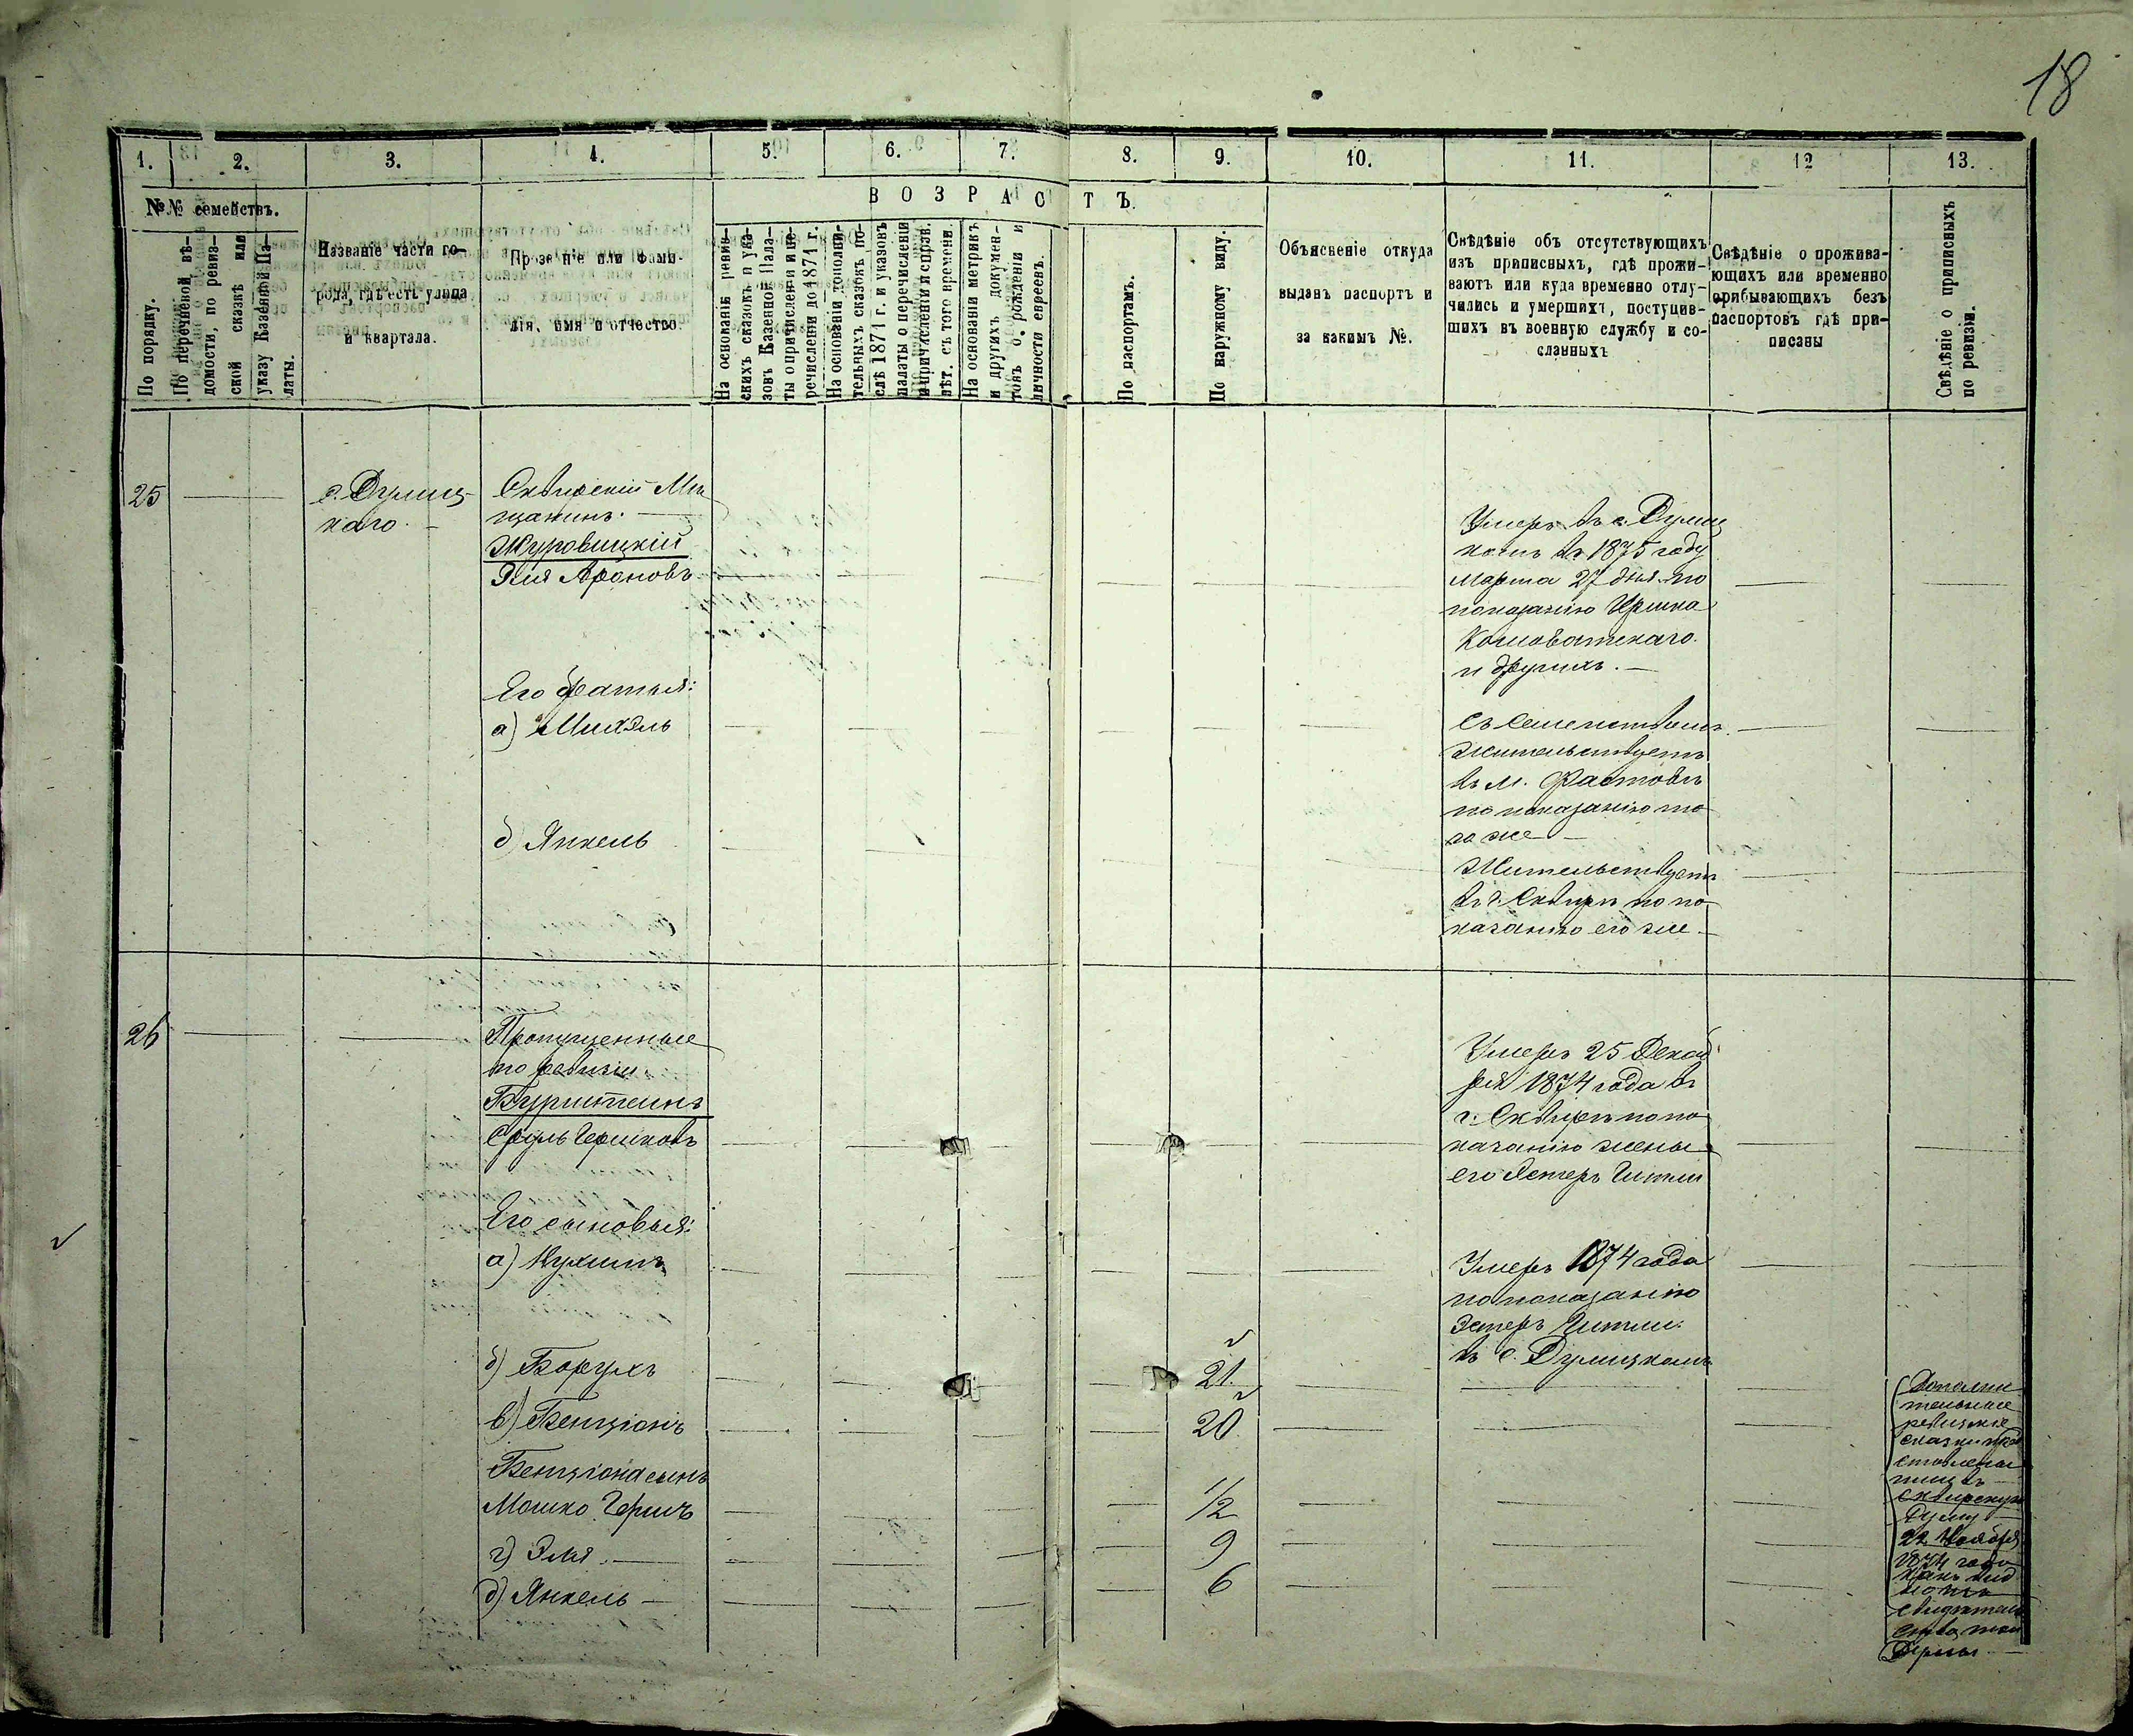 18
1. 2. 3. 4. 5. 6. 7. 8. 9. 10. 11. 12 13.
В О З Р А С Т Ъ.
№№ семействъ.
По порядку.
По перечневой вѣ-
домости, по ревиз-
ской сказкѣ или
указу Казенной Па-
латы.
Названіе части го-
рода, гдѣ есть улица
и квартала.
Прозваніе или фами-
лія, имя и отчество.
На основаніи ревиз-
скихъ сказокъ и ука-
зовъ Казенной Пала-
ты о причисленіи и пе-
речисленіи до 1871 г.
На основаніи дополни-
тельныхъ сказокъ по-
слѣ 1871 г. и указовъ
палаты о перечисленіи
и причисленіи и справ.
лѣт. съ того времени.
На основаніи метрикъ
и другихъ докумен-
товъ о рожденіи и
личности евреевъ.
По паспортамъ.
По наружному виду.
Объясненіе откуда
выданъ паспортъ и
за какимъ №.
Свѣдѣніе объ отсутствующихъ
изъ приписныхъ, гдѣ прожи-
ваютъ или куда временно отлу-
чились и умершихъ, поступив-
шихъ въ военную службу и со-
сланныхъ
Свѣдѣніе о прожива-
ющихъ или временно
прибывающихъ безъ
паспортовъ гдѣ при-
писаны
Свѣдѣніе о приписныхъ
по ревизіи.
25
с. Дулиц-
каго.
Сквирскій Мѣ
щанинъ.
Журовицкій
Эля Ароновъ
Умеръ въ с. Дулиц
комъ въ 1875 году
Марта 27 дня по
показанію Иршка
Кошоватскаго
и другихъ.
Его братья:
а) Михэль
Съ Семействомъ
Жительствуетъ
въ м. Фастовѣ
по показанію то
го же
б) Янкель
Жительствуетъ
въ г. Сквирѣ по по
казанію его же
26
Пропущенные
по ревизіи
Бурштейнъ
Сруль Гершковъ
Умеръ 25 Декаб
ря 1874 года въ
г. Сквирѣ по по
казанію жены
его Эстеръ Читли
Его сыновья:
а) Нухимъ
Умеръ 1874 года
по показанію
Эстеръ Читли
въ с. Дулицкомъ
б) Борухъ 21.
в) Бенціонъ 20
Бенціона сынъ
Мошко Гершъ 1/2
г) Эля 9
д) Янкель 6
Дополни
тельные
ревизкіе
сказки пред
ставлены
Сквирскую
Думу
22 Ноября
1874 года
какъ вид
но изъ
свидѣтель
ства той
Думы